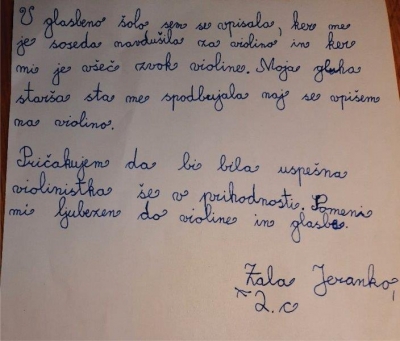 V glasbeno šolo sem se vpisala, ker me
je soseda navdušila za violino in ker
mi je všeč zvok violine. Moja gluha
starša sta me spodbujala naj se vpišem
na violino.
Pričakujem da bi bila uspešna
violinistka še v prihodnosti. Pomeni
mi ljubezen do violine in glasbe.
Zala Jeranko,
2. c